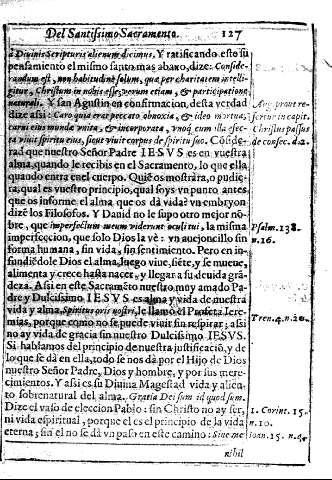 Del Santissimo Sacramento. 127
à Diuinis Scripturis alienum dicimus. Y ratificando este su
pensamiento el mismo santo mas abaxo, dize: Conside-
randum est, non habitudine solum, quæ per charitatem intelli-
gitur, Christum in nobis esse, verum etiam, & participatione
naturali. Y san Agustin en confirmacion, desta verdad
dize assi: Caro quia erat peccato obnoxia, & ideo mortua,
carni eius munda vnita, & incorporata, vnoq́ cum illa effec-
ta viuit spiritu eius, sicut viuit corpus de spiritu suo. Cõside-
rad que nuestro Señor Padre IESVS es en vuestra
alma, quando le recibis en el Sacramento, lo que ella
quando entra en el cuerpo. Quiẽ os mostràra, o pudie-
ra, qual es vuestro principio, qual soys vn punto antes
que os informe el alma que os dà vida? vn embryon
dizẽ los Filosofos. Y Dauid no le supo otro mejor nõ-
bre, que imperfectum meum viderunt oculi tui, la misma
imperfeccion, que solo Dios la vè: vn auejoncillo sin
forma humana, sin vida, sin sentimiento. Pero en in-
fundiẽdole Dios el alma, luego viue, siẽte, y se mueue,
alimenta y crece hasta nacer, y llegar a su deuida grã-
deza. Assi en este Sacramẽto nuestro muy amado Pa-
dre y Dulcissimo IESVS es alma y vida de nuestra
vida y alma, Spiritus oris nostri, le llamò el Profeta Iere-
mias, porque como no se puede viuir sin respirar; assi
no ay vida de gracia sin nuestro Dulcissimo IESVS.
Si hablamos del principio de nuestra justificaciõ, y de
lo que se dà en ella, todo se nos dà por el Hijo de Dios
nuestro Señor Padre, Dios y hombre, y por sus mere-
cimientos. Y assi es su Diuina Magestad vida y alien-
to sobrenatural del alma. Gratia Dei sum id quod sum.
Dize el vaso de eleccion Pablo: sin Christo no ay ser,
ni vida espiritual, porque el es el principio de la vida
eterna; sin el no se dà vn paso en este camino: Sine me
nihil
Aug. prout re-
fertur in capit.
Christus passus
de consec. d. 2.
Psalm. 138.
n. 16.
Tren. 4. n. 20.
1. Corint. 15.
n. 10.
Ioan. 15. n. 5.